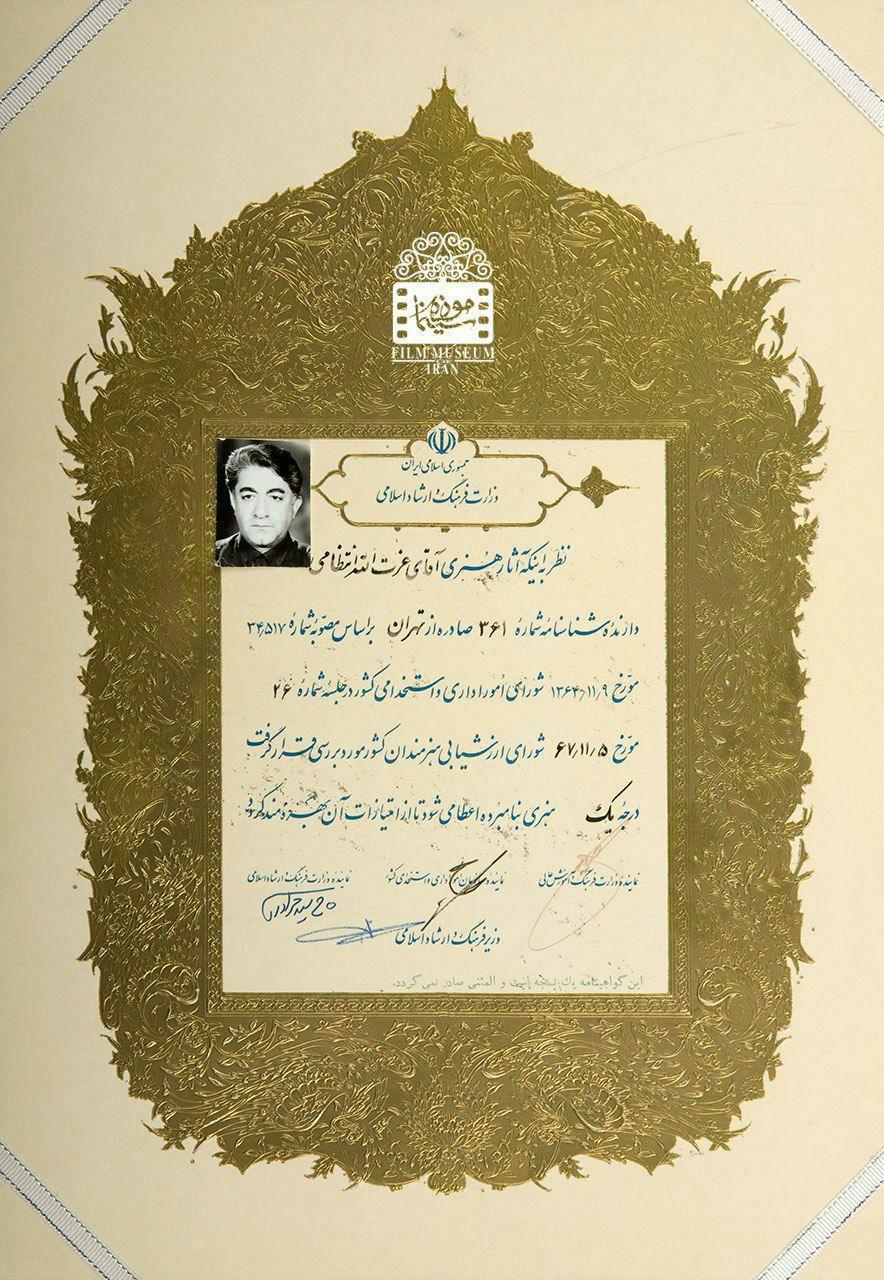 موزه سینما
FILM MUSEUM
IRAN
جمهوری اسلامی ایران
وزارت فرهنگ و ارشاد اسلامی
نظر به اینکه آثار هنری آقای عزت الله انتظامی
دارنده شناسنامه شماره ۳۶۱ صادره از تهران براساس مصوبه شماره ۳۴,۵۱۷
مورخ ۱۳۶۴,۱۱,۹ شورای امور اداری و استخدامی کشور در جلسه شماره ۲۶
مورخ ۶۷,۱۱,۵ شورای ارزشیابی هنرمندان کشور مورد بررسی قرار گرفت
درجه یک هنری بنامبرده اعطا می شود تا از امتیازات آن بهره مند گردد
نماینده وزارت فرهنگ و آموزش عالی نماینده سازمان امور اداری و استخدامی کشور نماینده وزارت فرهنگ و ارشاد اسلامی
وزیر فرهنگ و ارشاد اسلامی
این گواهینامه یک نسخه است و المثنی صادر نمی گردد.